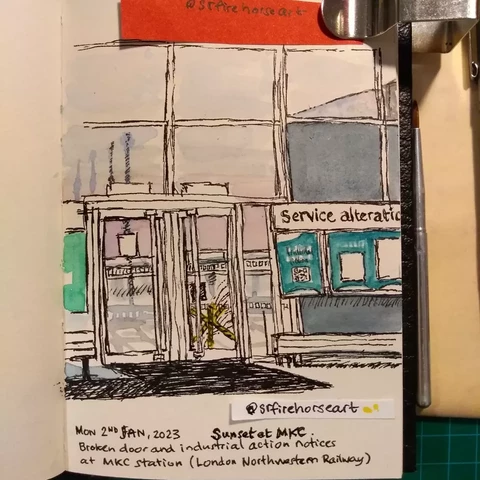 @srfirehorseart
Service alteratio
@srfirehorseart
MON 2ND JAN, 2023 Sunset at MKC.
Broken door and industrial action notices
at MKC station (London Northwestern Railway)